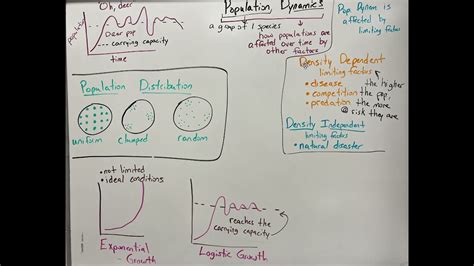 Oh, deer
population
Deer pop
carrying capacity
time
Population Dynamics
a group of 1 species
how populations are
affected over time by
other factors
Pop Dynam is
affected by
limiting factors
Density Dependent
limiting factors
• disease
• competition
• predation
the higher
the pop,
the more
@ risk they are
Density Independent
limiting factors
• natural disaster
Population Distribution
uniform
clumped
random
• not limited
• ideal conditions
Exponential
Growth
reaches the
carrying capacity
Logistic Growth